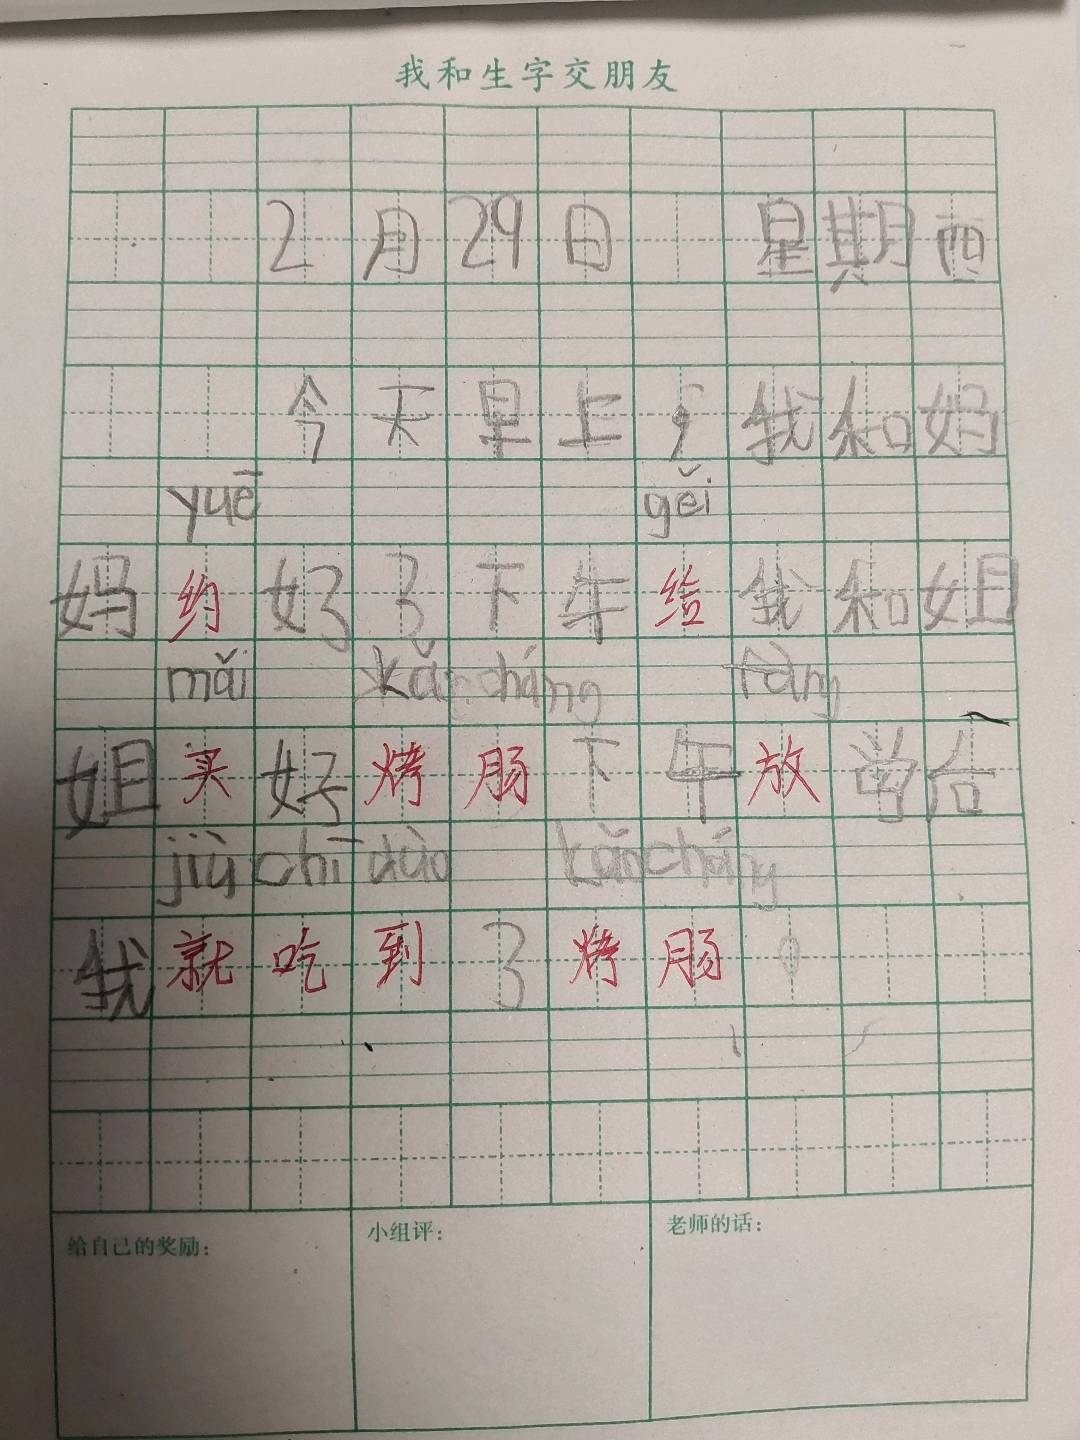 我和生字交朋友
2月29日 星期四
今天早上，我和妈
yuē gěi
妈约好了下午给我和姐
mǎi kǎo cháng fàng
姐买好烤肠下午放学后
jiù chī dào kǎo cháng
我就吃到了烤肠。
给自己的奖励：
小组评：
老师的话：